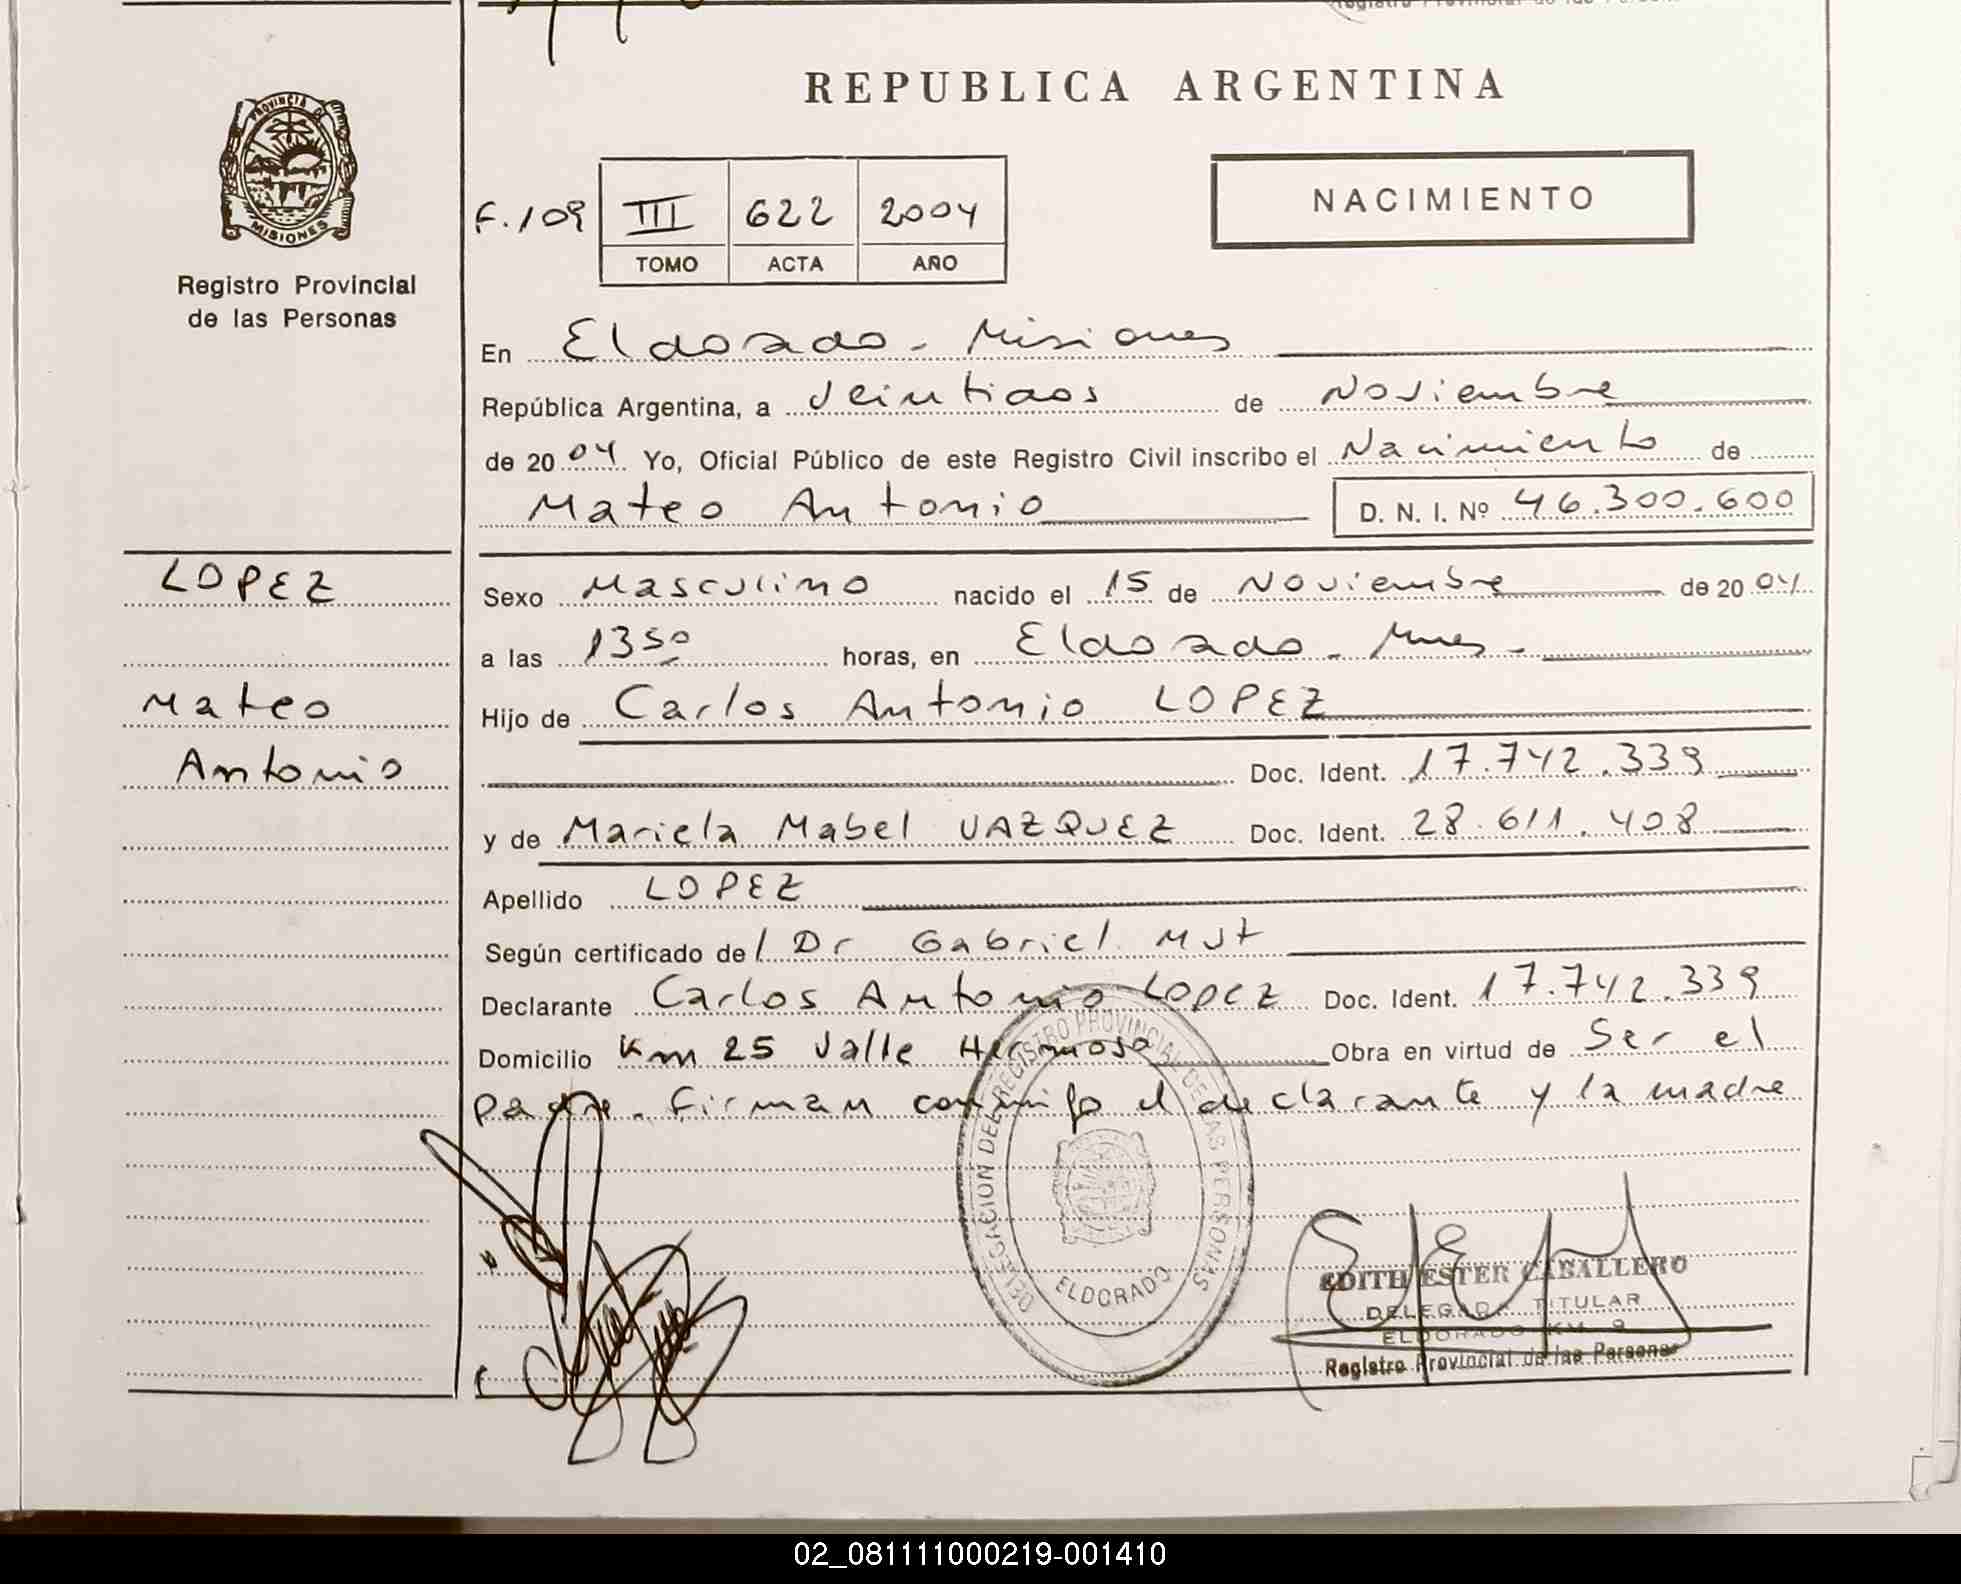 REPUBLICA ARGENTINA
PROVINCIA DE MISIONES
Registro Provincial
de las Personas
F. 109 III 622 2004
TOMO ACTA AÑO
NACIMIENTO
En Eldorado - Misiones
República Argentina, a Veintidos de Noviembre
de 2004 Yo, Oficial Público de este Registro Civil inscribo el Nacimiento de
Mateo Antonio D. N. I. Nº 46.300.600
LOPEZ
Mateo
Antonio
Sexo Masculino nacido el 15 de Noviembre de 2004
a las 1350 horas, en Eldorado - Mnes -
Hijo de Carlos Antonio LOPEZ
Doc. Ident. 17.742.339
y de Mariela Mabel VAZQUEZ Doc. Ident. 28.611.408
Apellido LOPEZ
Según certificado del Dr Gabriel Mut
Declarante Carlos Antonio Lopez Doc. Ident. 17.742.339
Domicilio Km 25 Valle Hermoso Obra en virtud de Ser el
padre. Firman conmigo el declarante y la madre
DELEGACION DEL REGISTRO PROVINCIAL DE LAS PERSONAS
ELDORADO
EDITH ESTER CABALLERO
DELEGADA TITULAR
ELDORADO KM. 9
Registro Provincial de las Personas
02_081111000219-001410